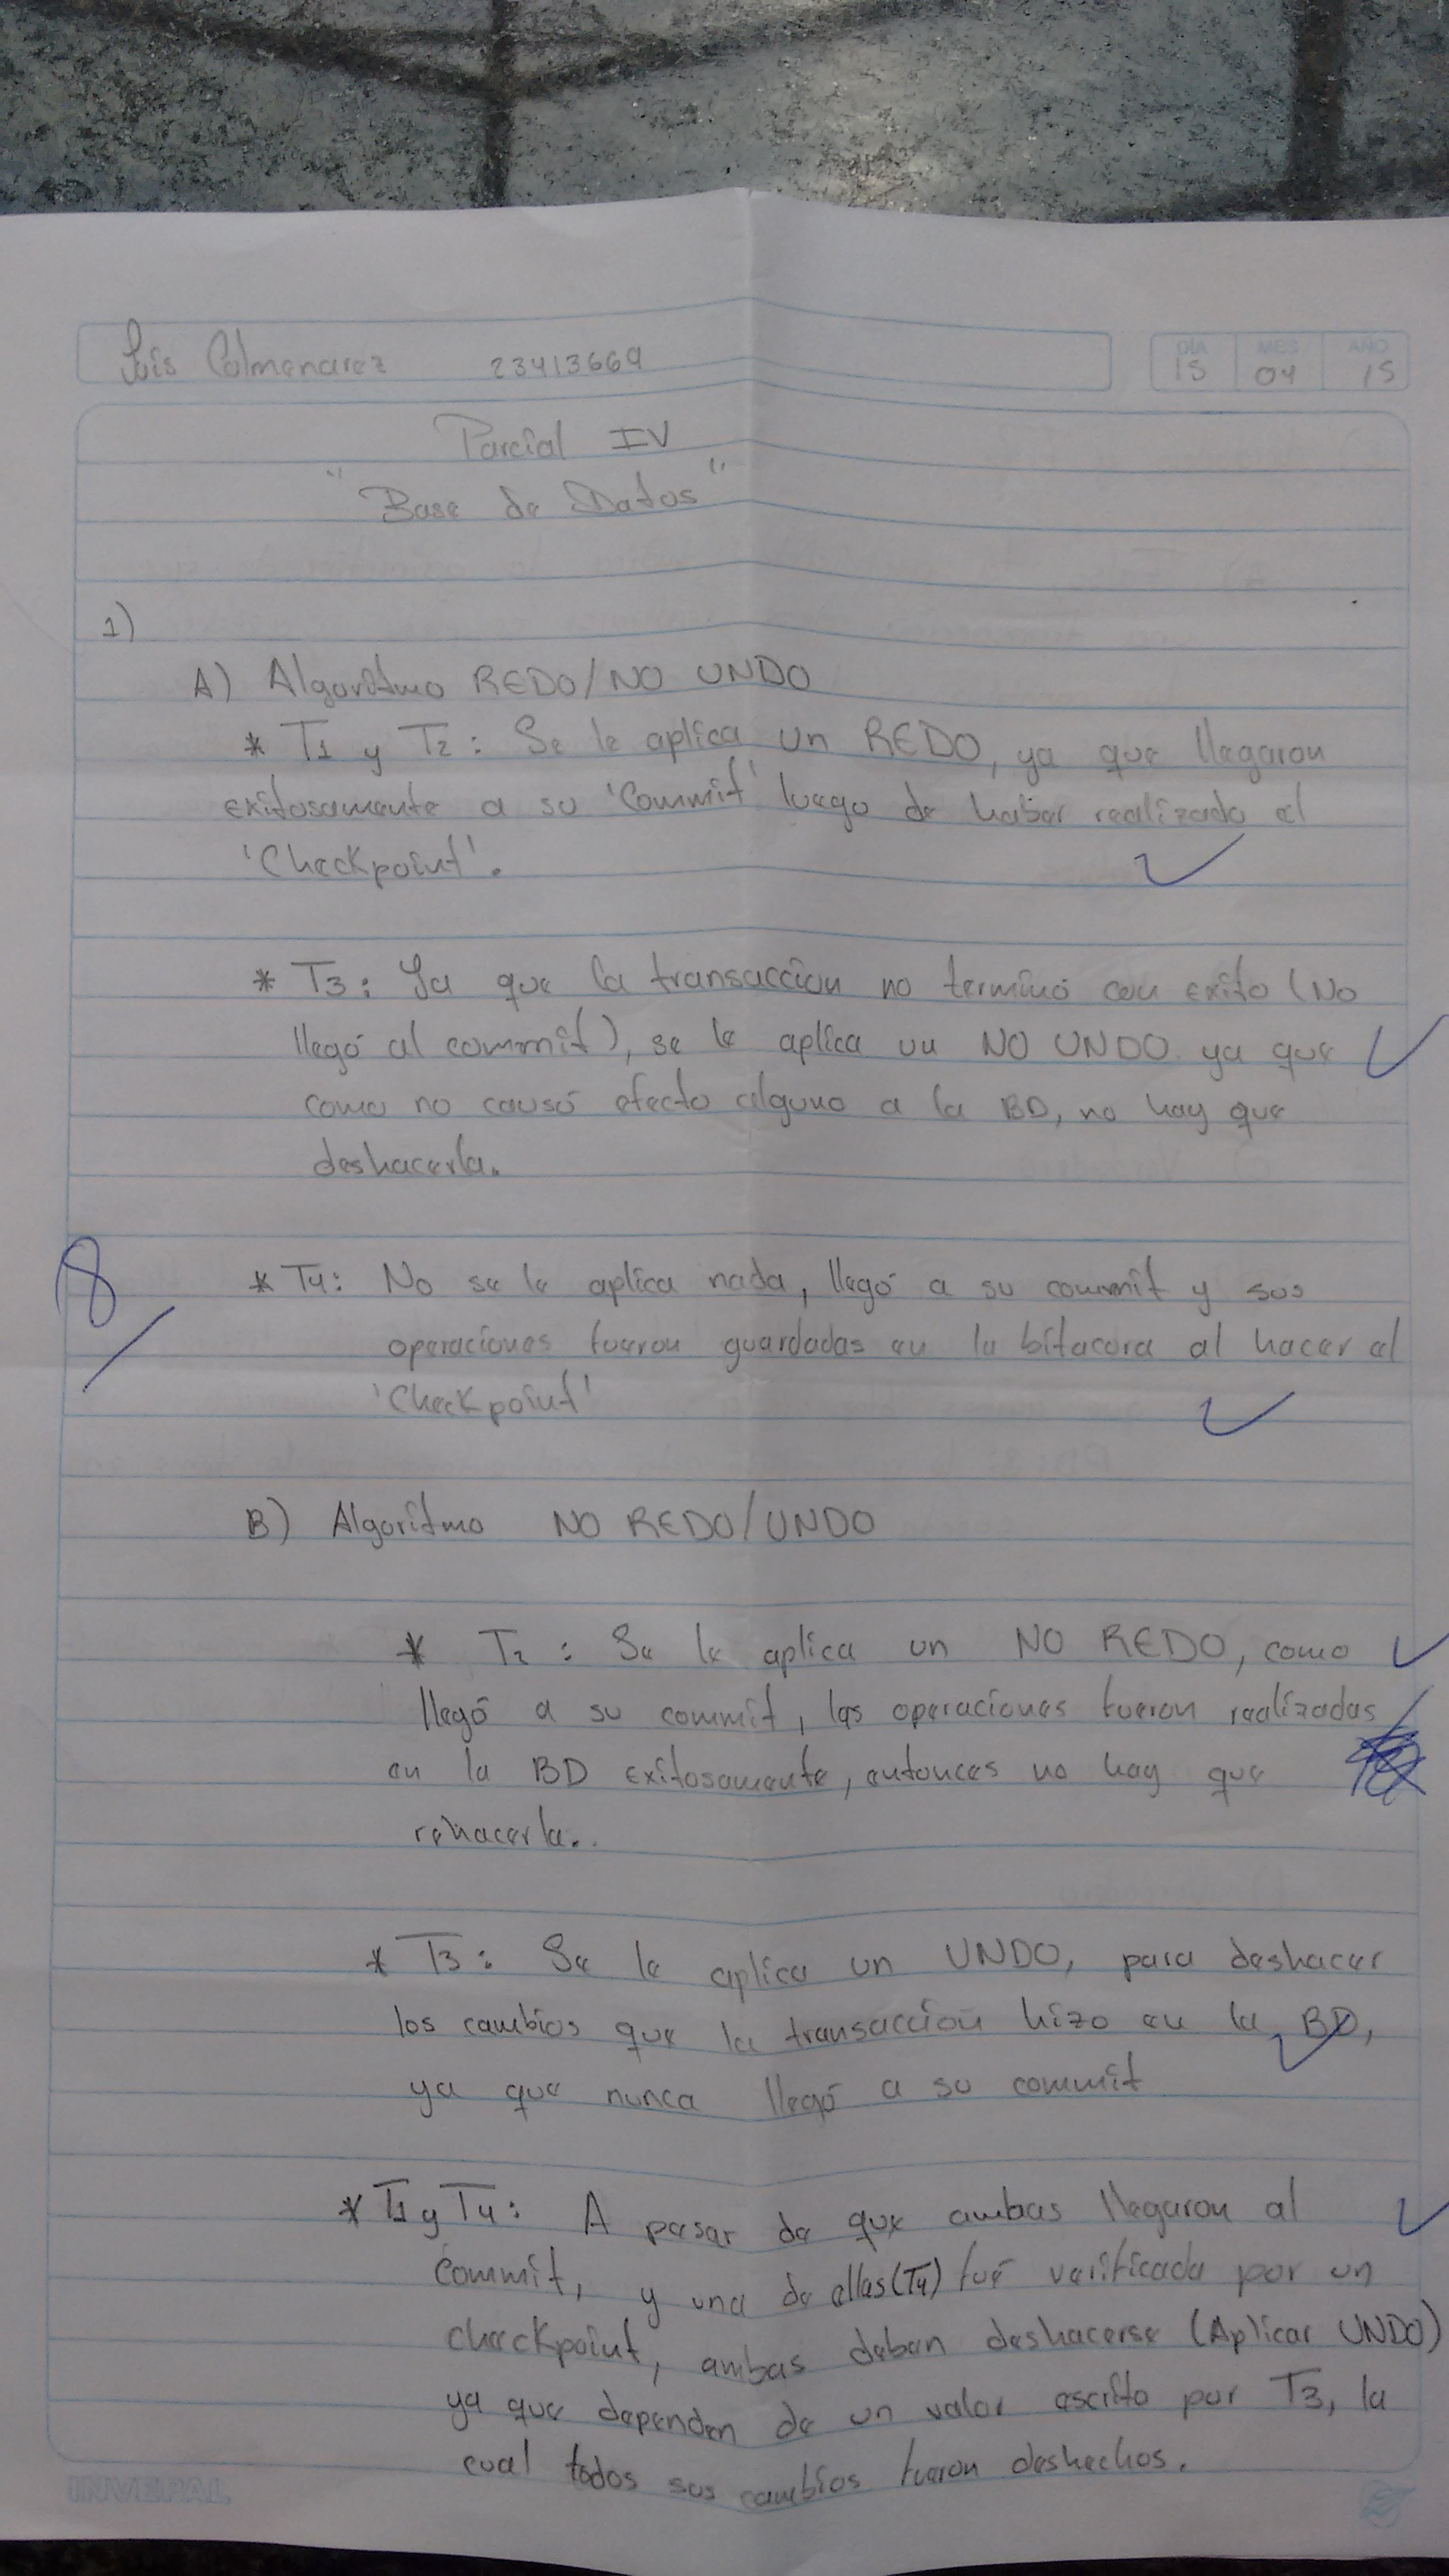 Luis Colmenarez 23413669
DIA MES AÑO
15 04 15
Parcial IV
"Base de Datos"
1)
A) Algoritmo REDO/NO UNDO
* T1 y T2: Se le aplica un REDO, ya que llegaron
exitosamente a su 'Commit' luego de haber realizado el
'Checkpoint'.
* T3: Ya que la transaccion no terminó con exito (No
llegó al commit), se le aplica un NO UNDO ya que
como no causó efecto alguno a la BD, no hay que
deshacerla.
8
* T4: No se le aplica nada, llegó a su commit y sus
operaciones fueron guardadas en la bitacora al hacer el
'Checkpoint'
B) Algoritmo NO REDO/UNDO
* T2: Se le aplica un NO REDO, como
llegó a su commit, las operaciones fueron realizadas
en la BD exitosamente, entonces no hay que
rehacerla..
* T3: Se le aplica un UNDO, para deshacer
los cambios que la transaccion hizo en la BD,
ya que nunca llegó a su commit
* T1 y T4: A pesar de que ambas llegaron al
commit, y una de ellas (T4) fué verificada por un
checkpoint, ambas deben deshacerse (Aplicar UNDO)
ya que dependen de un valor escrito por T3, la
cual todos sus cambios fueron deshechos.
INVEPAL